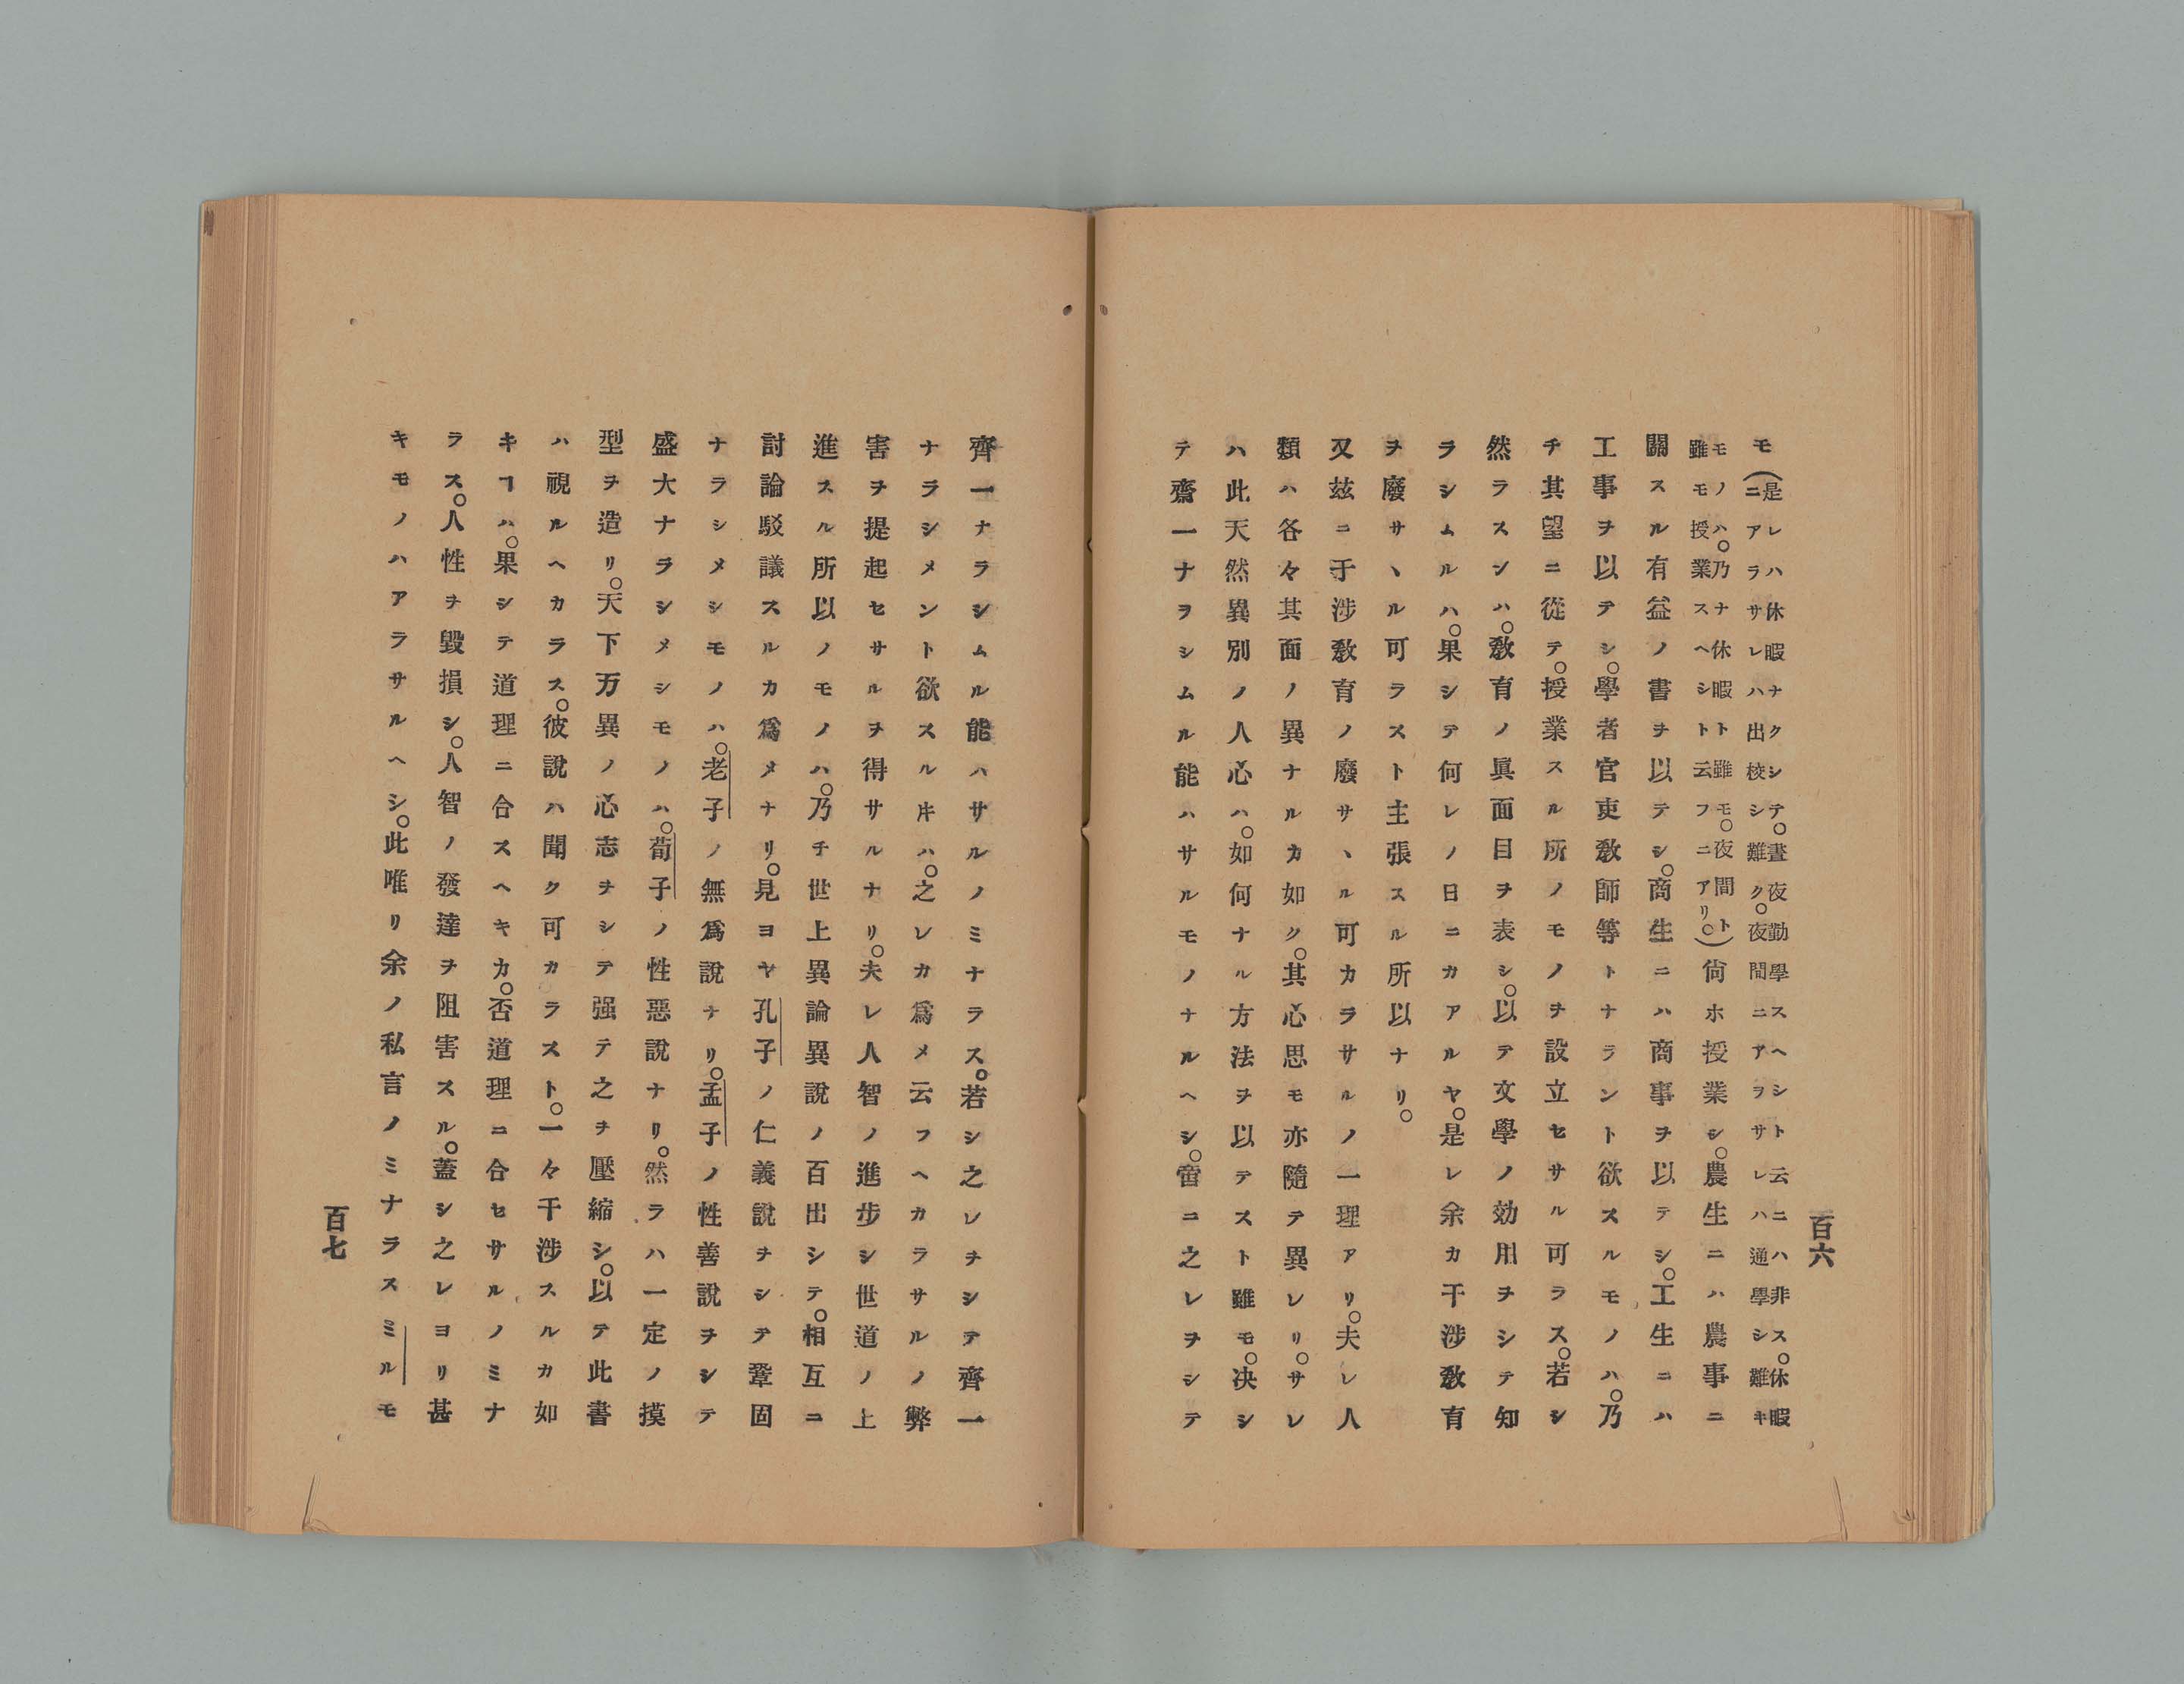 百六
モ(是レハ休暇ナクシテ。晝夜勤學スヘシト云ニハ非ス。休暇
ニアラサレハ出校シ難ク。夜間ニアヲサレハ通學シ難キ
モノハ。乃ナ休暇ト雖モ。夜間ト
雖モ授業スヘシト云フニアリ。)尙ホ授業シ。農生ニハ農事ニ
關スル有益ノ書ヲ以テシ。商生ニハ商事ヲ以テシ。工生ニハ
工事ヲ以テシ。學者官吏敎師等トナラント欲スルモノハ。乃
チ其望ニ從テ。授業スル所ノモノヲ設立セサル可ラス。若シ
然ラスンハ。敎育ノ眞面目ヲ表シ。以テ文學ノ効用ヲシテ知
ラシムルハ。果シテ何レノ日ニカアルヤ。是レ余カ干涉敎育
ヲ廢サヽル可ラスト主張スル所以ナリ。
又玆ニ于涉敎育ノ廢サヽル可カラサルノ一理アリ。夫レ人
類ハ各々其面ノ異ナルカ如ク。其心思モ亦隨テ異レリ。サレ
ハ此天然異別ノ人心ハ。如何ナル方法ヲ以テスト雖モ。决シ
テ齋一ナヲシムル能ハサルモノナルヘシ。啻ニ之レヲシテ
齊一ナラシムル能ハサルノミナラス。若シ之レヲシテ齊一
ナラシメント欲スルキハ。之レカ爲メ云フヘカラサルノ弊
害ヲ提起セサルヲ得サルナリ。夫レ人智ノ進步シ世道ノ上
進スル所以ノモノハ。乃チ世上異論異說ノ百出シテ。相互ニ
討論駁議スルカ爲メナリ。見ヨヤ孔子ノ仁義說ヲシテ鞏固
ナラシメシモノハ。老子ノ無爲說ナリ。孟子ノ性善說ヲシテ
盛大ナラシメシモノハ。荀子ノ性惡說ナリ。然ラハ一定ノ摸
型ヲ造リ。天下万異ノ心志ヲシテ强テ之ヲ壓縮シ。以テ此書
ハ視ルヘカラス。彼說ハ聞ク可カラスト。一々干涉スルカ如
キヿハ。果シテ道理ニ合スヘキカ。否道理ニ合セサルノミナ
ラス。人性ヲ毀損シ。人智ノ發達ヲ阻害スル。蓋シ之レヨリ甚
キモノハアラサルヘシ。此唯リ余ノ私言ノミナラスミルモ
百七